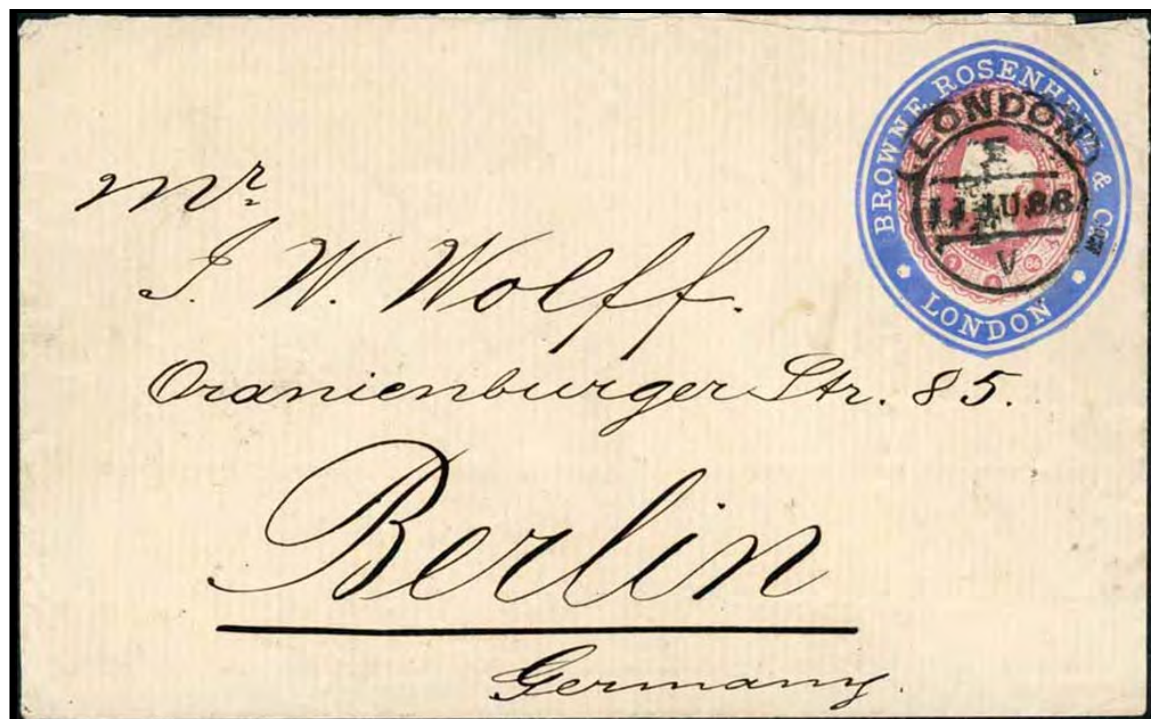 BROWNE, ROSENHEIM & Co
LONDON
LONDON
E
11 AU 86
V
Mr
J. W. Wolff.
Oranienburger Str. 85.
Berlin
Germany.